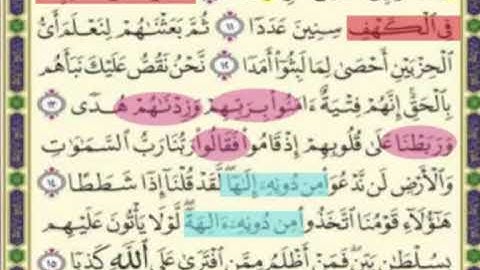 فِي ٱلۡكَهۡفِ سِنِينَ عَدَدٗا ١١ ثُمَّ بَعَثۡنَٰهُمۡ لِنَعۡلَمَ أَيُّ
ٱلۡحِزۡبَيۡنِ أَحۡصَىٰ لِمَا لَبِثُوٓاْ أَمَدٗا ١٢ نَّحۡنُ نَقُصُّ عَلَيۡكَ نَبَأَهُم
بِٱلۡحَقِّۚ إِنَّهُمۡ فِتۡيَةٌ ءَامَنُواْ بِرَبِّهِمۡ وَزِدۡنَٰهُمۡ هُدٗى ١٣
وَرَبَطۡنَا عَلَىٰ قُلُوبِهِمۡ إِذۡ قَامُواْ فَقَالُواْ رَبُّنَا رَبُّ ٱلسَّمَٰوَٰتِ
وَٱلۡأَرۡضِ لَن نَّدۡعُوَاْ مِن دُونِهِۦٓ إِلَٰهٗاۖ لَّقَدۡ قُلۡنَآ إِذٗا شَطَطًا ١٤
هَٰٓؤُلَآءِ قَوۡمُنَا ٱتَّخَذُواْ مِن دُونِهِۦٓ ءَالِهَةٗۖ لَّوۡلَا يَأۡتُونَ عَلَيۡهِم
بِسُلۡطَٰنِۭ بَيِّنٖۖ فَمَنۡ أَظۡلَمُ مِمَّنِ ٱفۡتَرَىٰ عَلَى ٱللَّهِ كَذِبٗا ١٥